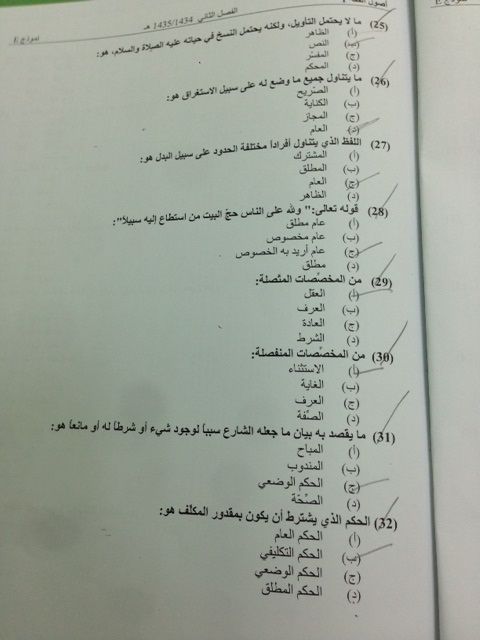 أصول الفقه
الفصل الثاني 1435/1434 هـ
نموذج E
(25) ما لا يحتمل التأويل، ولكنه يحتمل النسخ في حياته عليه الصلاة والسلام، هو:
(أ) الظاهر
(ب) النص
(ج) المفسّر
(د) المحكم
(26) ما يتناول جميع ما وضع له على سبيل الاستغراق هو:
(أ) الصّريح
(ب) الكناية
(ج) المجاز
(د) العام
(27) اللفظ الذي يتناول أفراداً مختلفة الحدود على سبيل البدل هو:
(أ) المشترك
(ب) المطلق
(ج) العام
(د) الظاهر
(28) قوله تعالى:" ولله على الناس حجّ البيت من استطاع إليه سبيلاً":
(أ) عام مطلق
(ب) عام مخصوص
(ج) عام أريد به الخصوص
(د) مطلق
(29) من المخصّصات المتّصلة:
(أ) العقل
(ب) العرف
(ج) العادة
(د) الشرط
(30) من المخصّصات المنفصلة:
(أ) الاستثناء
(ب) الغاية
(ج) العرف
(د) الصّفة
(31) ما يقصد به بيان ما جعله الشارع سبباً لوجود شيء أو شرطاً له أو مانعاً هو:
(أ) المباح
(ب) المندوب
(ج) الحكم الوضعي
(د) الصّحّة
(32) الحكم الذي يشترط أن يكون بمقدور المكلّف هو:
(أ) الحكم العام
(ب) الحكم التكليفي
(ج) الحكم الوضعي
(د) الحكم المطلق